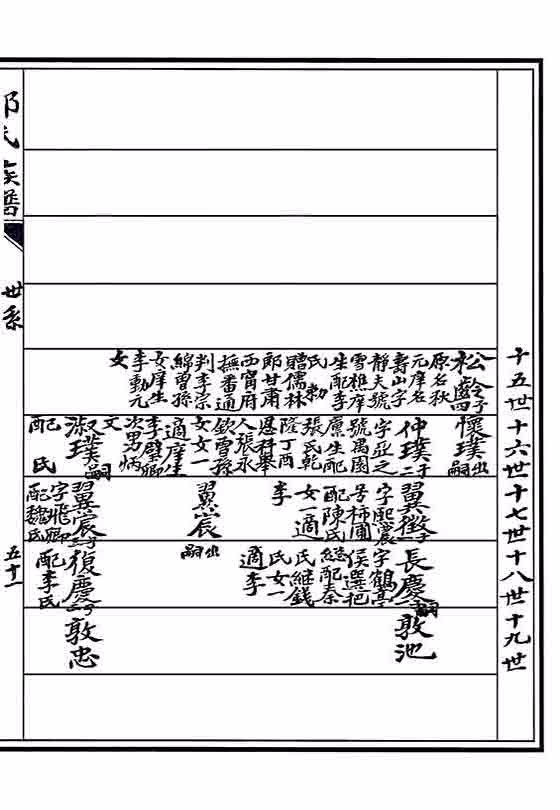 十五世十六世十七世十八世十九世
松齡子四
原名秋
元庠名
壽山字
靜夫號
雪樵庠
生配李
氏勅
贈儒林
郎甘肅
西寧府
撫番通
判李宗
綿曾孫
女庠生
李動元
女
懷璞出嗣
仲璞子二
字亞之
號禺園
廩生配
張氏乾
隆丁酉
恩科舉
人張永
欽曾孫
女女一
適庠生
李璧卿
次男炳
文
淑璞嗣
配
氏
翼徵子一
字熙震
号柿圃
配陳氏
女一適
李
翼宸出嗣
翼宸子一
字飛卿
配魏氏
長慶嗣子一
字鶴亭
侯選把
總配秦
氏继錢
氏女一
適李
復慶子一
配李氏
敦池
敦忠
氏族譜
世系
五十一